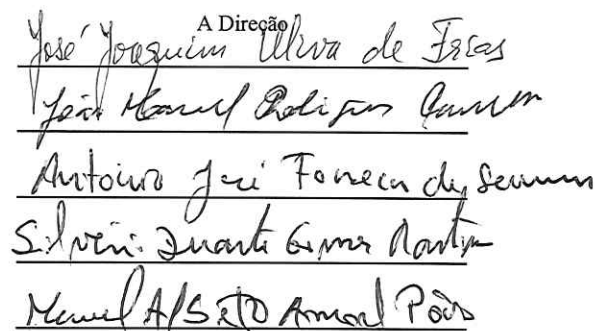 A Direção
José Joaquim Oliva de Frias
João Manuel Rodrigues
António José Fonseca de
Duarte Gomes Martins
Manuel Alberto Amaral